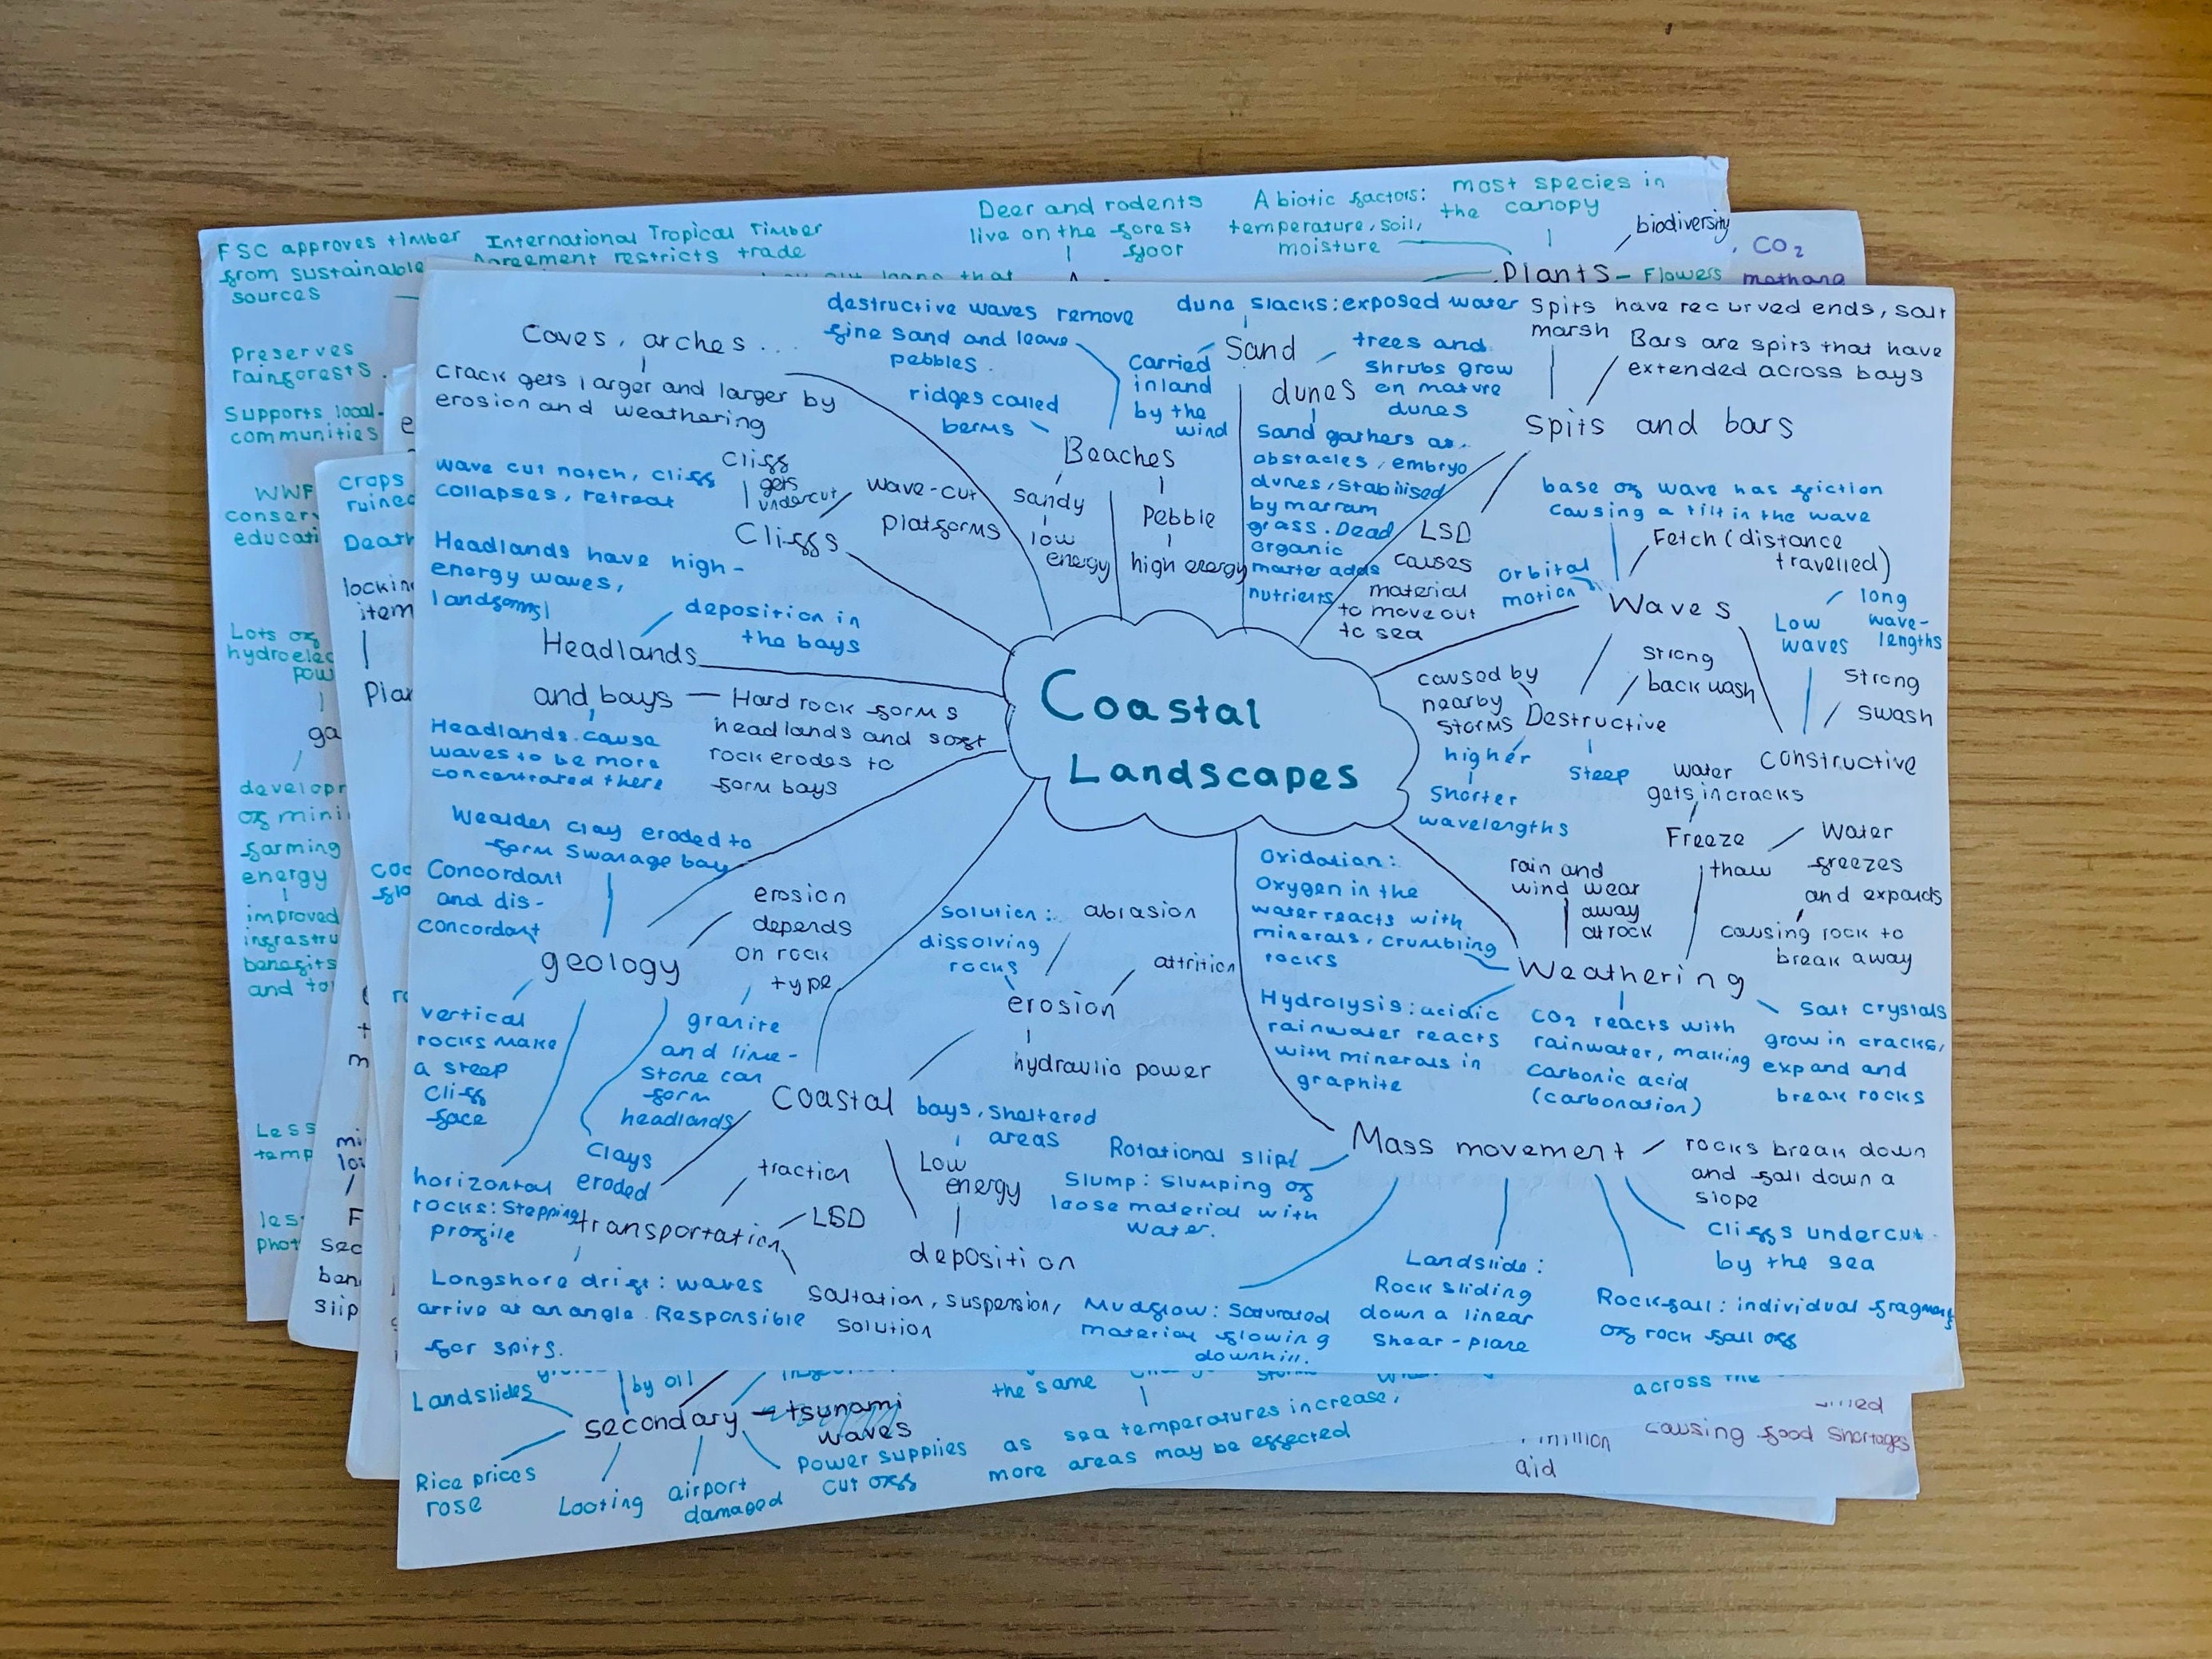 FSC approves timber
from sustainable
sources
International Tropical Timber
Agreement restricts trade
Deer and rodents
live on the forest
floor
Abiotic factors:
temperature, soil,
moisture
most species in
the canopy
biodiversity
Plants - Flowers
CO2
methane
Preserves
rainforests.
Supports local
communities
WWF
Lots of
crops
ruined
Death
Caves, arches...
crack gets larger and larger by
erosion and weathering
destructive waves remove
fine sand and leave
pebbles.
ridges called
berms
Beaches
Sandy
low
energy
Pebble
high energy
dune slacks: exposed water
Sand
dunes
carried
inland
by the
wind
trees and
shrubs grow
on mature
dunes
Sand gathers as
obstacles, embryo
dunes, stabilised
by marram
grass. Dead
organic
matter adds
nutrients
Spits have recurved ends, salt
marsh
Bars are spits that have
extended across bays
Spits and bars
LSD
causes
material
to move out
to sea
wave cut notch, cliff
collapses, retreat
cliff
gets
undercut
wave-cut
platforms
Cliffs
Headlands have high-
energy waves,
landforms!
deposition in
the bays
Headlands
and bays - Hard rock forms
headlands and soft
rock erodes to
form bays
Headlands cause
waves to be more
concentrated there
Coastal
Landscapes
base of wave has friction
causing a tilt in the wave
Fetch (distance
travelled)
orbital
motion
Waves
Low
waves
long
wave-
lengths
strong
swash
constructive
caused by
nearby
storms
strong
backwash
Destructive
higher
shorter
wavelengths
steep
water
gets in cracks
Freeze
thaw
Water
freezes
and expands
causing rock to
break away
rain and
wind wear
away
at rock
Weathering
Oxidation:
Oxygen in the
water reacts with
minerals, crumbling
rocks
Hydrolysis: acidic
rainwater reacts
with minerals in
graphite
CO2 reacts with
rainwater, making
carbonic acid
(carbonation)
Salt crystals
grow in cracks,
expand and
break rocks
Wealden clay eroded to
form Swanage bay
Concordant
and dis-
concordant
geology
erosion
depends
on rock
type
vertical
rocks make
a steep
cliff
face
granite
and lime-
stone can
form
headlands
Clays
eroded
horizontal
rocks: Stepping
profile
Coastal
solution:
dissolving
rocks
abrasion
attrition
erosion
hydraulic power
bays, sheltered
areas
Low
energy
deposition
traction
LSD
transportation
saltation, suspension,
solution
Longshore drift: waves
arrive at an angle. Responsible
for spits.
Mass movement
rocks break down
and fall down a
slope
cliffs undercut
by the sea
Rotational slip/
Slump: Slumping of
loose material with
water.
Mudflow: Saturated
material flowing
downhill.
Landslide:
Rock sliding
down a linear
shear-plane
Rockfall: individual fragments
of rock fall off
Landslides
by oil
secondary
tsunami
waves
Rice prices
rose
Looting
airport
damaged
Power supplies
cut off
the same
as sea temperatures increase,
more areas may be effected
across the
million
aid
causing food shortages